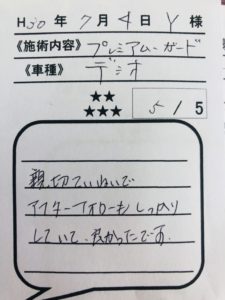 H30年7月4日 Y様
《施術内容》プレミアム・ガード
《車種》デミオ
★★
★★★
5/5
親切ていねいで
アフターフォローもしっかり
していて、良かったです。